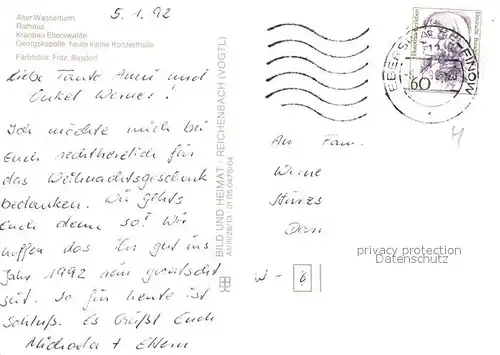 Alter Wasserturm
Rathaus
Kranbau Eberswalde
Georgskapelle, heute kleine Konzerthalle
Farbfotos: Fritz, Basdorf
5.1.92
Liebe Tante Anni und
Onkel Werner!
Ich möchte mich bei
Euch recht herzlich für
das Weihnachtsgeschenk
bedanken. Wie gehts
Euch denn so? Wir
hoffen das Ihr gut ins
Jahr 1992 rein gerutscht
seit. So für heute ist
Schluß. Es Grüßt Euch
Michaela + Eltern
BILD UND HEIMAT · REICHENBACH (VOGTL)
An Fam.
W - 6
60
EBERSWALDE-FINOW
privacy protection
Datenschutz